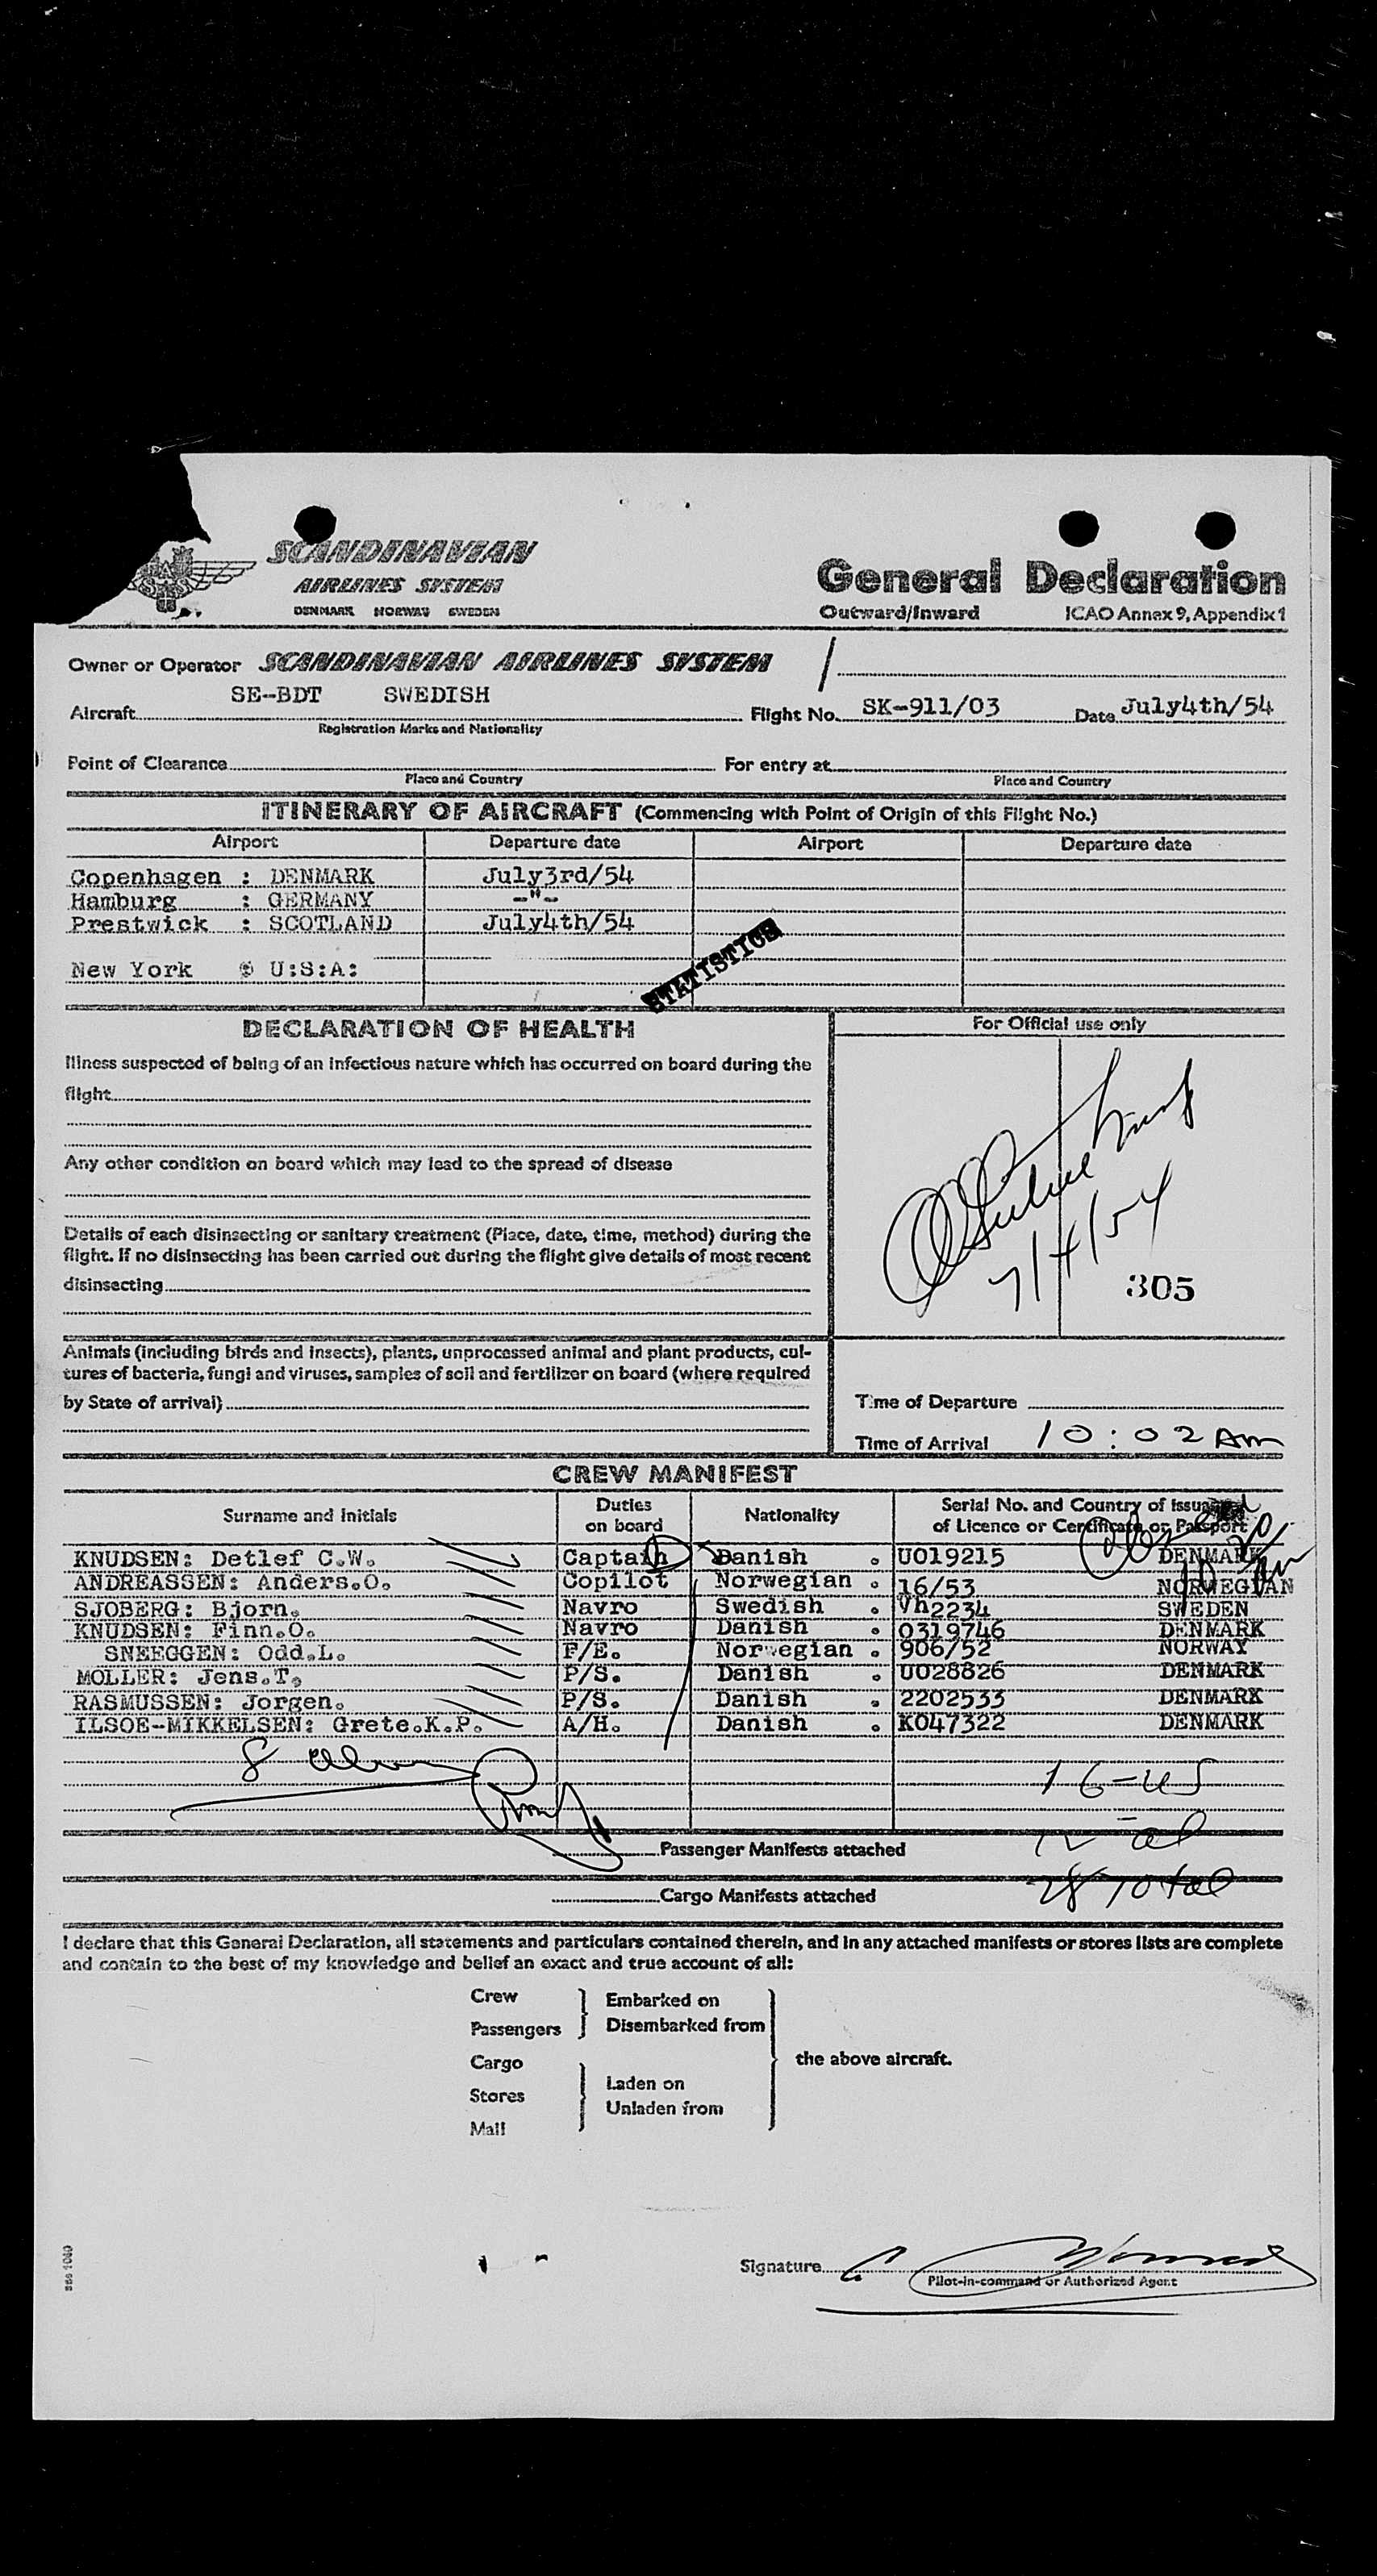 SCANDINAVIAN
AIRLINES SYSTEM
DENMARK NORWAY SWEDEN
General Declaration
Outward/Inward ICAO Annex 9, Appendix 1
Owner or Operator SCANDINAVIAN AIRLINES SYSTEM
SE-BDT SWEDISH
Aircraft Flight No. SK-911/03 Date July4th/54
Registration Marks and Nationality
Point of Clearance For entry at
Place and Country Place and Country
ITINERARY OF AIRCRAFT (Commencing with Point of Origin of this Flight No.)
Airport Departure date Airport Departure date
Copenhagen : DENMARK July3rd/54
Hamburg : GERMANY -"-
Prestwick : SCOTLAND July4th/54
STATISTICS
New York : U:S:A:
DECLARATION OF HEALTH
Illness suspected of being of an infectious nature which has occurred on board during the
flight
Any other condition on board which may lead to the spread of disease
Details of each disinsecting or sanitary treatment (Place, date, time, method) during the
flight. If no disinsecting has been carried out during the flight give details of most recent
disinsecting
For Official use only
7/4/54
305
Animals (including birds and insects), plants, unprocessed animal and plant products, cul-
tures of bacteria, fungi and viruses, samples of soil and fertilizer on board (where required
by State of arrival)
Time of Departure
Time of Arrival 10:02 AM
CREW MANIFEST
Surname and Initials Duties on board Nationality Serial No. and Country of Issuance of Licence or Certificate or Passport
KNUDSEN: Detlef C.W. Captain Danish . U019215 DENMARK
ANDREASSEN: Anders.O. Copilot Norwegian . 16/53 NORWEGIAN
SJOBERG: Bjorn. Navro Swedish . Vh2234 SWEDEN
KNUDSEN: Finn.O. Navro Danish . 0319746 DENMARK
SNEEGGEN: Odd.L. F/E. Norwegian . 906/52 NORWAY
MOLLER: Jens.T. P/S. Danish . U028826 DENMARK
RASMUSSEN: Jorgen. P/S. Danish . 2202533 DENMARK
ILSOE-MIKKELSEN: Grete.K.P. A/H. Danish . K047322 DENMARK
8
16-US
Passenger Manifests attached 12 al
Cargo Manifests attached 28 Total
I declare that this General Declaration, all statements and particulars contained therein, and in any attached manifests or stores lists are complete
and contain to the best of my knowledge and belief an exact and true account of all:
Crew
Passengers
Embarked on
Disembarked from
Cargo
Stores
Mail
Laden on
Unladen from
the above aircraft.
Signature
Pilot-in-command or Authorized Agent